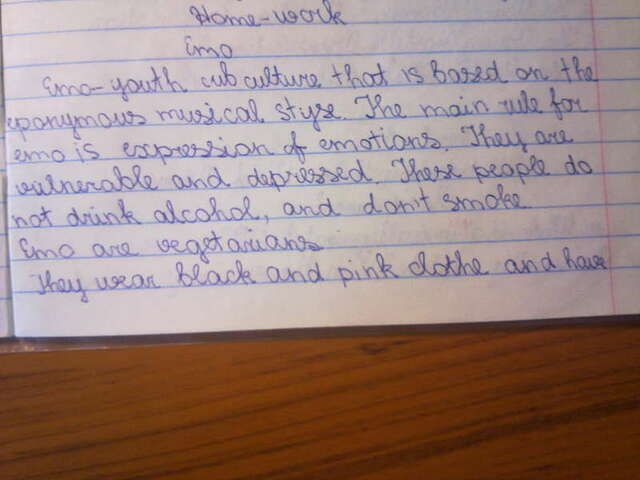 Home-work
Emo
Emo-youth subculture that is based on the
eponymous musical style. The main rule for
emo is expression of emotions. They are
vulnerable and depressed. These people do
not drink alcohol, and don't smoke
Emo are vegetarians
They wear black and pink clothe and have